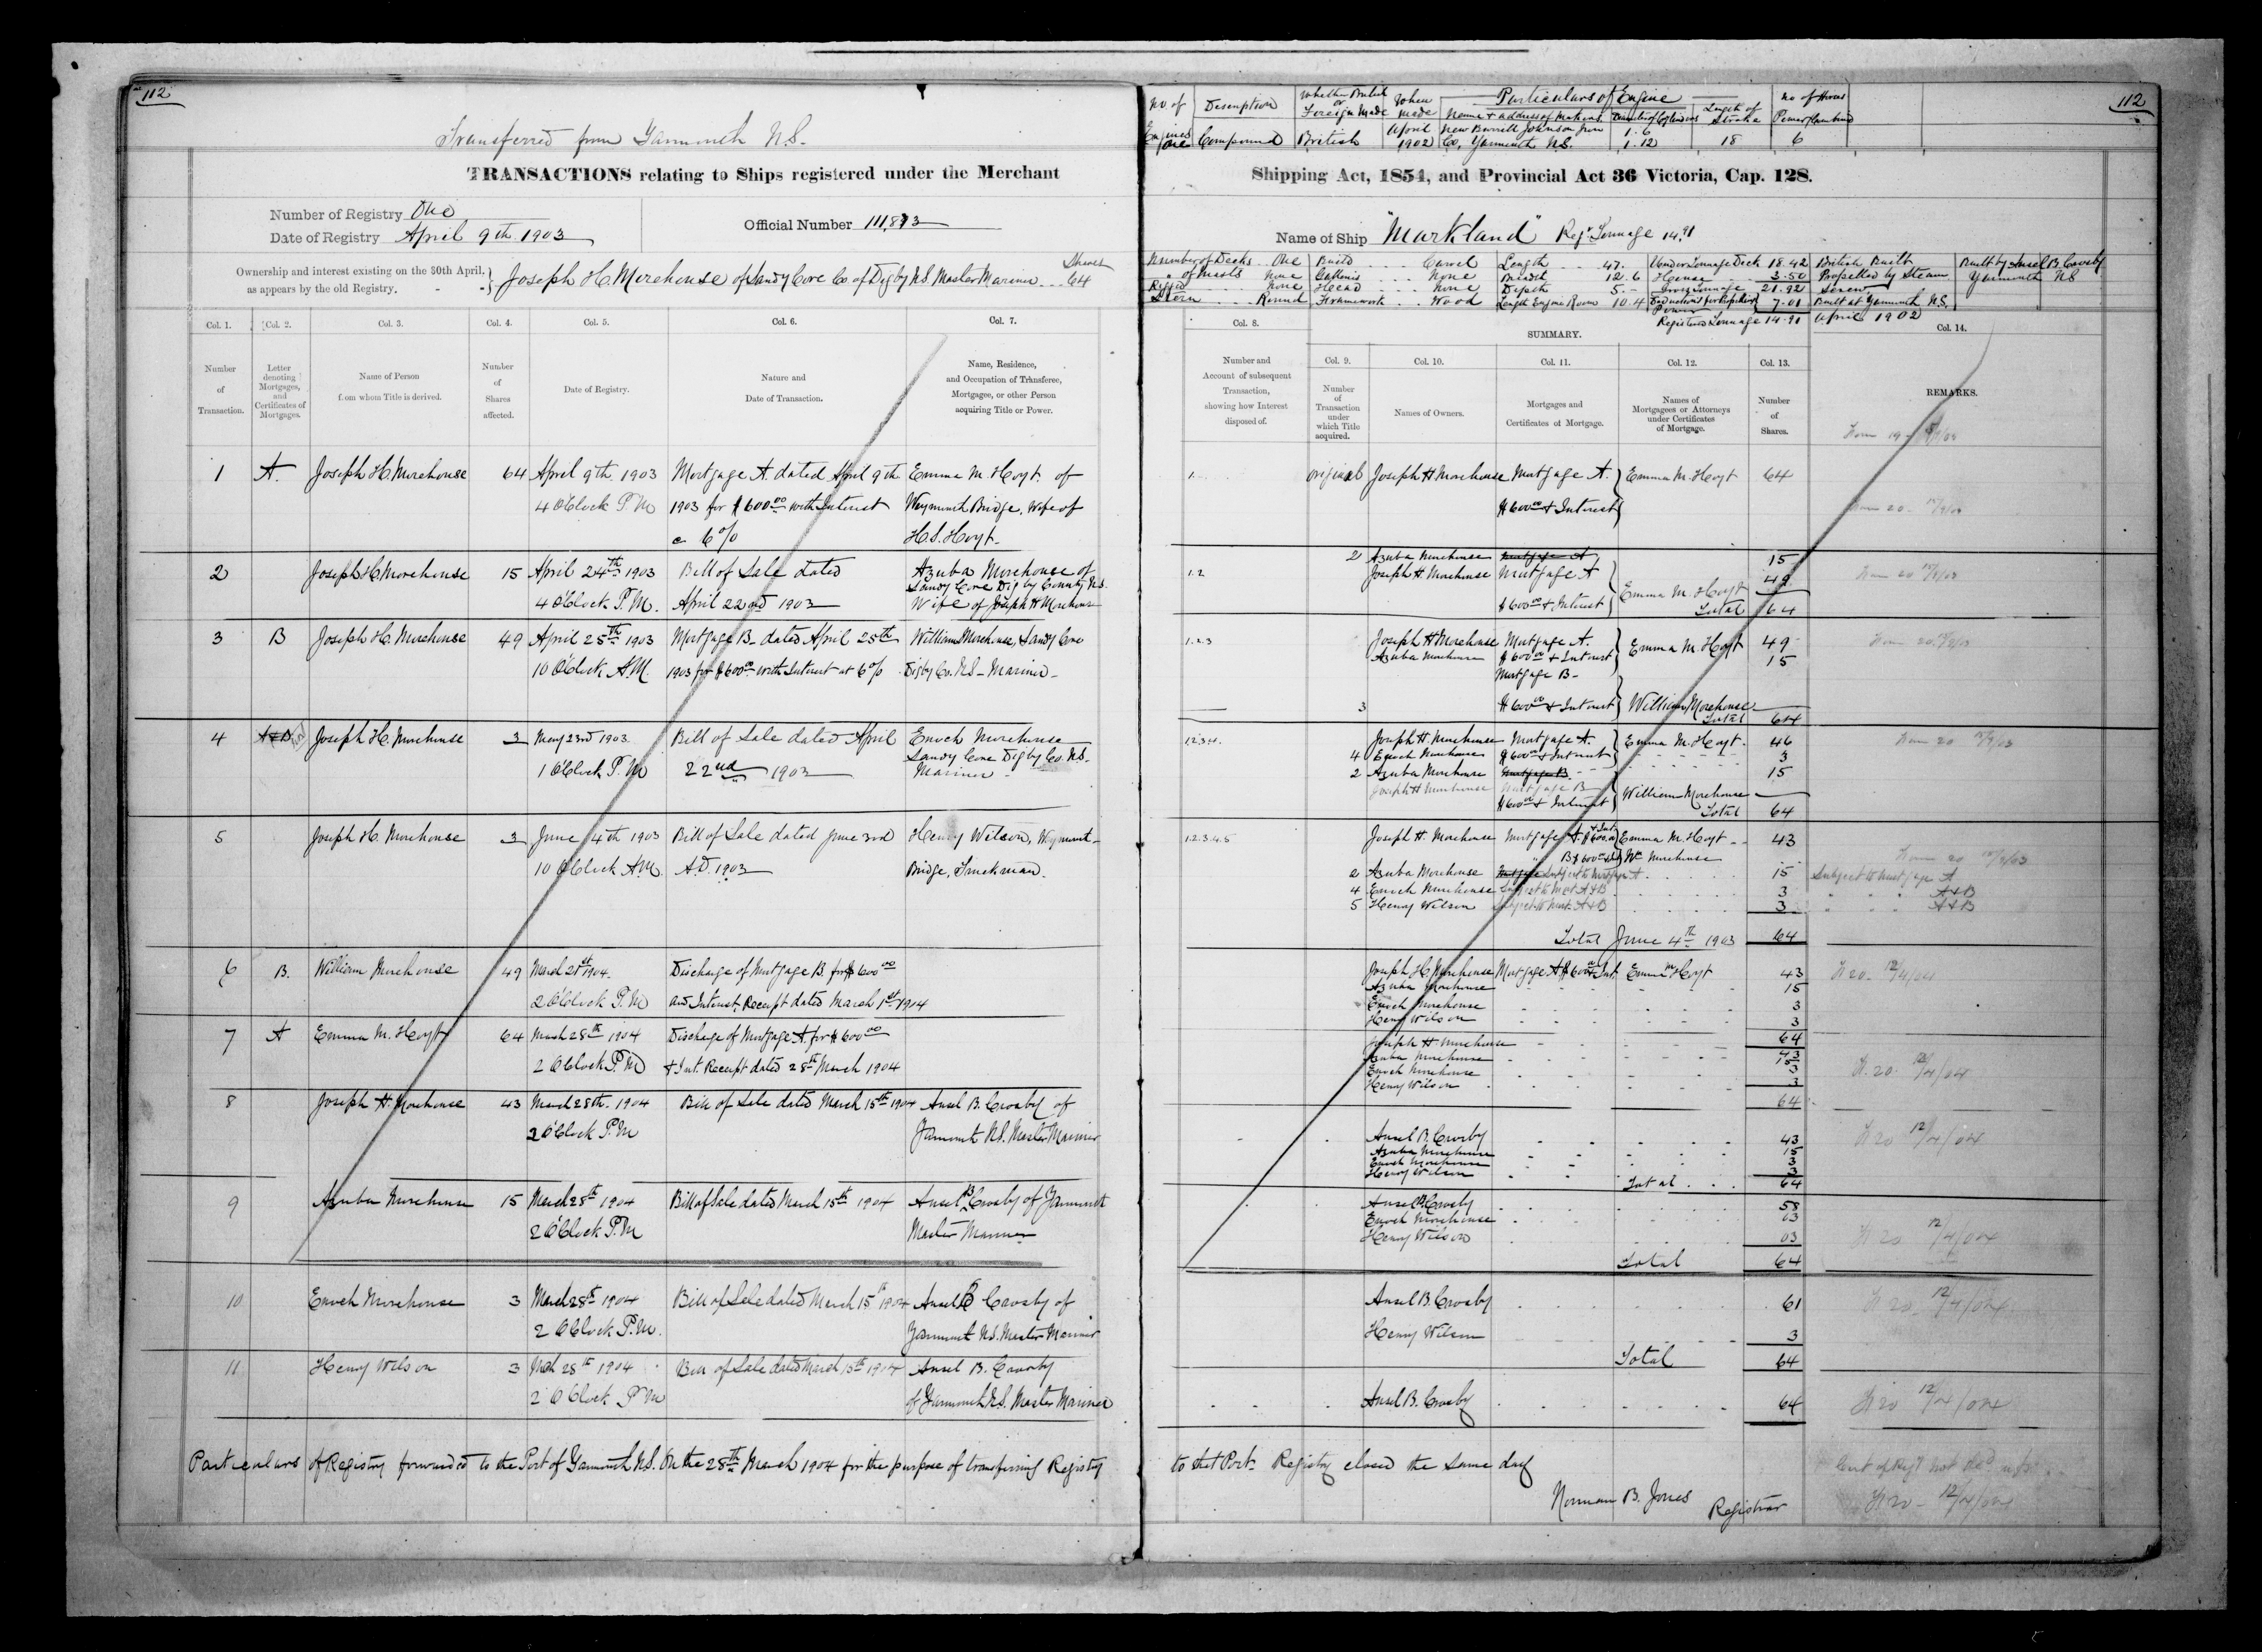 112
Transferred from Yarmouth N.S.
TRANSACTIONS relating to Ships registered under the Merchant
Number of Registry One
Date of Registry April 9th 1903
Official Number 111,873
Ownership and interest existing on the 30th April,
as appears by the old Registry.
Joseph H. Morehouse of Sandy Cove Co of Digby N.S. Master Mariner
Shares
64
Col. 1. Col. 2. Col. 3. Col. 4. Col. 5. Col. 6. Col. 7.
Number of Transaction.
Letter denoting Mortgages, and Certificates of Mortgages.
Name of Person from whom Title is derived.
Number of Shares affected.
Date of Registry.
Nature and Date of Transaction.
Name, Residence, and Occupation of Transferee, Mortgagee, or other Person acquiring Title or Power.
1 A. Joseph H. Morehouse 64 April 9th 1903 Mortgage A dated April 9th Emma M. Hoyt of
4 O'Clock P.M 1903 for $600.00 with Interest Weymouth Bridge, Wife of
@ 6% H.S. Hoyt
2 Joseph H. Morehouse 15 April 24th 1903 Bill of Sale dated Azuba Morehouse of
Sandy Cove Digby County N.S.
4 O'Clock P.M. April 22nd 1903 Wife of Joseph H Morehouse
3 B Joseph H. Morehouse 49 April 25th 1903 Mortgage B dated April 25th William Morehouse, Sandy Cove
10 O'Clock A.M. 1903 for $600.00 with Interest at 6% Digby Co. N.S - Mariner
4 A&B Joseph H. Morehouse 3 May 23rd 1903 Bill of Sale dated April Enoch Morehouse
Sandy Cove Digby Co N.S.
1 O'Clock P.M 22nd 1903 Mariner
5 Joseph H. Morehouse 3 June 4th 1903 Bill of Sale dated June 3rd Henry Wilson, Weymouth
10 O'Clock A.M. A.D. 1903 Bridge, Truckman.
6 B. William Morehouse 49 March 21st 1904 Discharge of Mortgage B. for $600.00
2 O'Clock P.M and Interest Receipt dated March 1st 1904
7 A Emma M. Hoyt 64 March 28th 1904 Discharge of Mortgage A. for $600.00
2 O'Clock P.M & Int. Receipt dated 28th March 1904
8 Joseph H. Morehouse 43 March 28th. 1904 Bill of Sale dated March 15th 1904 Ansel B. Crosby of
2 O'Clock P.M Yarmouth N.S. Master Mariner
9 Azuba Morehouse 15 March 28th 1904 Bill of Sale dated March 15th 1904 Ansel B. Crosby of Yarmouth
2 O'Clock P.M Master Mariner
10 Enoch Morehouse 3 March 28th 1904 Bill of Sale dated March 15th 1904 Ansel B Crosby of
2 O'Clock P.M. Yarmouth N.S. Master Mariner
11 Henry Wilson 3 Mch 28th 1904 Bill of Sale dated March 15th 1904 Ansel B. Crosby
2 O'Clock P.M of Yarmouth N.S. Master Mariner
Particulars of Registry forwarded to the Port of Yarmouth N.S. on the 28th March 1904 for the purpose of transferring Registry
112
No of Engines Description Whether British or Foreign Made When made Particulars of Engine
Name & address of makers Diameter of Cylinders Length of Stroke No of Horse Power Combined
One Compound British April 1902 New Burrell Johnson Iron Co, Yarmouth N.S. 1.6 1.12 18 6
Shipping Act, 1854, and Provincial Act 36 Victoria, Cap. 128.
Name of Ship "Markland" Regr. Tonnage 14.91
Number of Decks One Build Carvel Length 47. Under Tonnage Deck 18.42 British Built Built by Ansel B. Crosby
" of masts None Galleries None Breadth 12.6 Houses 3.50 Propelled by Steam Yarmouth NS
Rigged None Head None Depth 5.- Gross Tonnage 21.92 Screw
Stern Round Framework Wood Length Engine Room 10.4 Deductions for Propelling Power 7.01 Built at Yarmouth N.S.
Registered Tonnage 14.91 April 1902
Col. 8. SUMMARY. Col. 14.
Col. 9. Col. 10. Col. 11. Col. 12. Col. 13.
Number and Account of subsequent Transaction, showing how Interest disposed of.
Number of Transaction under which Title acquired.
Names of Owners.
Mortgages and Certificates of Mortgage.
Names of Mortgagees or Attorneys under Certificates of Mortgage.
Number of Shares.
REMARKS.
1. Original Joseph H Morehouse Mortgage A. Emma M. Hoyt 64
$600.00 & Interest
2 Azuba Morehouse Mortgage A 15
1.2 Joseph H. Morehouse Mortgage A 49
$600.00 & Interest Emma M. Hoyt
Total 64
1.2.3 Joseph H Morehouse Mortgage A. Emma M. Hoyt 49
Azuba Morehouse $600.00 & Interest 15
Mortgage B-
3 $600.00 & Interest William Morehouse
Total 64
1.2.3.4. Joseph H. Morehouse Mortgage A. Emma M. Hoyt. 46
4 Enoch Morehouse $600.00 & Interest 3
2 Azuba Morehouse Mortgage B 15
Joseph H Morehouse Mortgage B
$600.00 & Interest William Morehouse
Total 64
1.2.3.4.5 Joseph H. Morehouse Mortgage A. $600.00 & Int Emma M. Hoyt 43
" B $600.00 & Int Wm Morehouse
2 Azuba Morehouse Mortgage Subject to Mortgage A 15 Subject to Mortgage A
4 Enoch Morehouse Subject to Mort A & B 3 " " " A & B
5 Henry Wilson Subject to Mort. A & B 3 " " " A & B
Total June 4th 1903 64
Joseph H. Morehouse Mortgage A $600.00 & Int. Emma M Hoyt 43 12/4/04
Azuba Morehouse 15
Enoch Morehouse 3
Henry Wilson 3
64
Joseph H Morehouse 43
Azuba Morehouse 15
Enoch Morehouse 3
Henry Wilson 3
64
Ansel B. Crosby 43 12/4/04
Azuba Morehouse 15
Enoch Morehouse 3
Henry Wilson 3
Total 64
Ansel B. Crosby 58
Enoch Morehouse 03 12/4/04
Henry Wilson 03
Total 64
Ansel B. Crosby 61 12/4/04
Henry Wilson 3
Total 64
Ansel B. Crosby 64 12/4/04
to that Port Registry closed the same day
Norman B. Jones Registrar
12/4/04